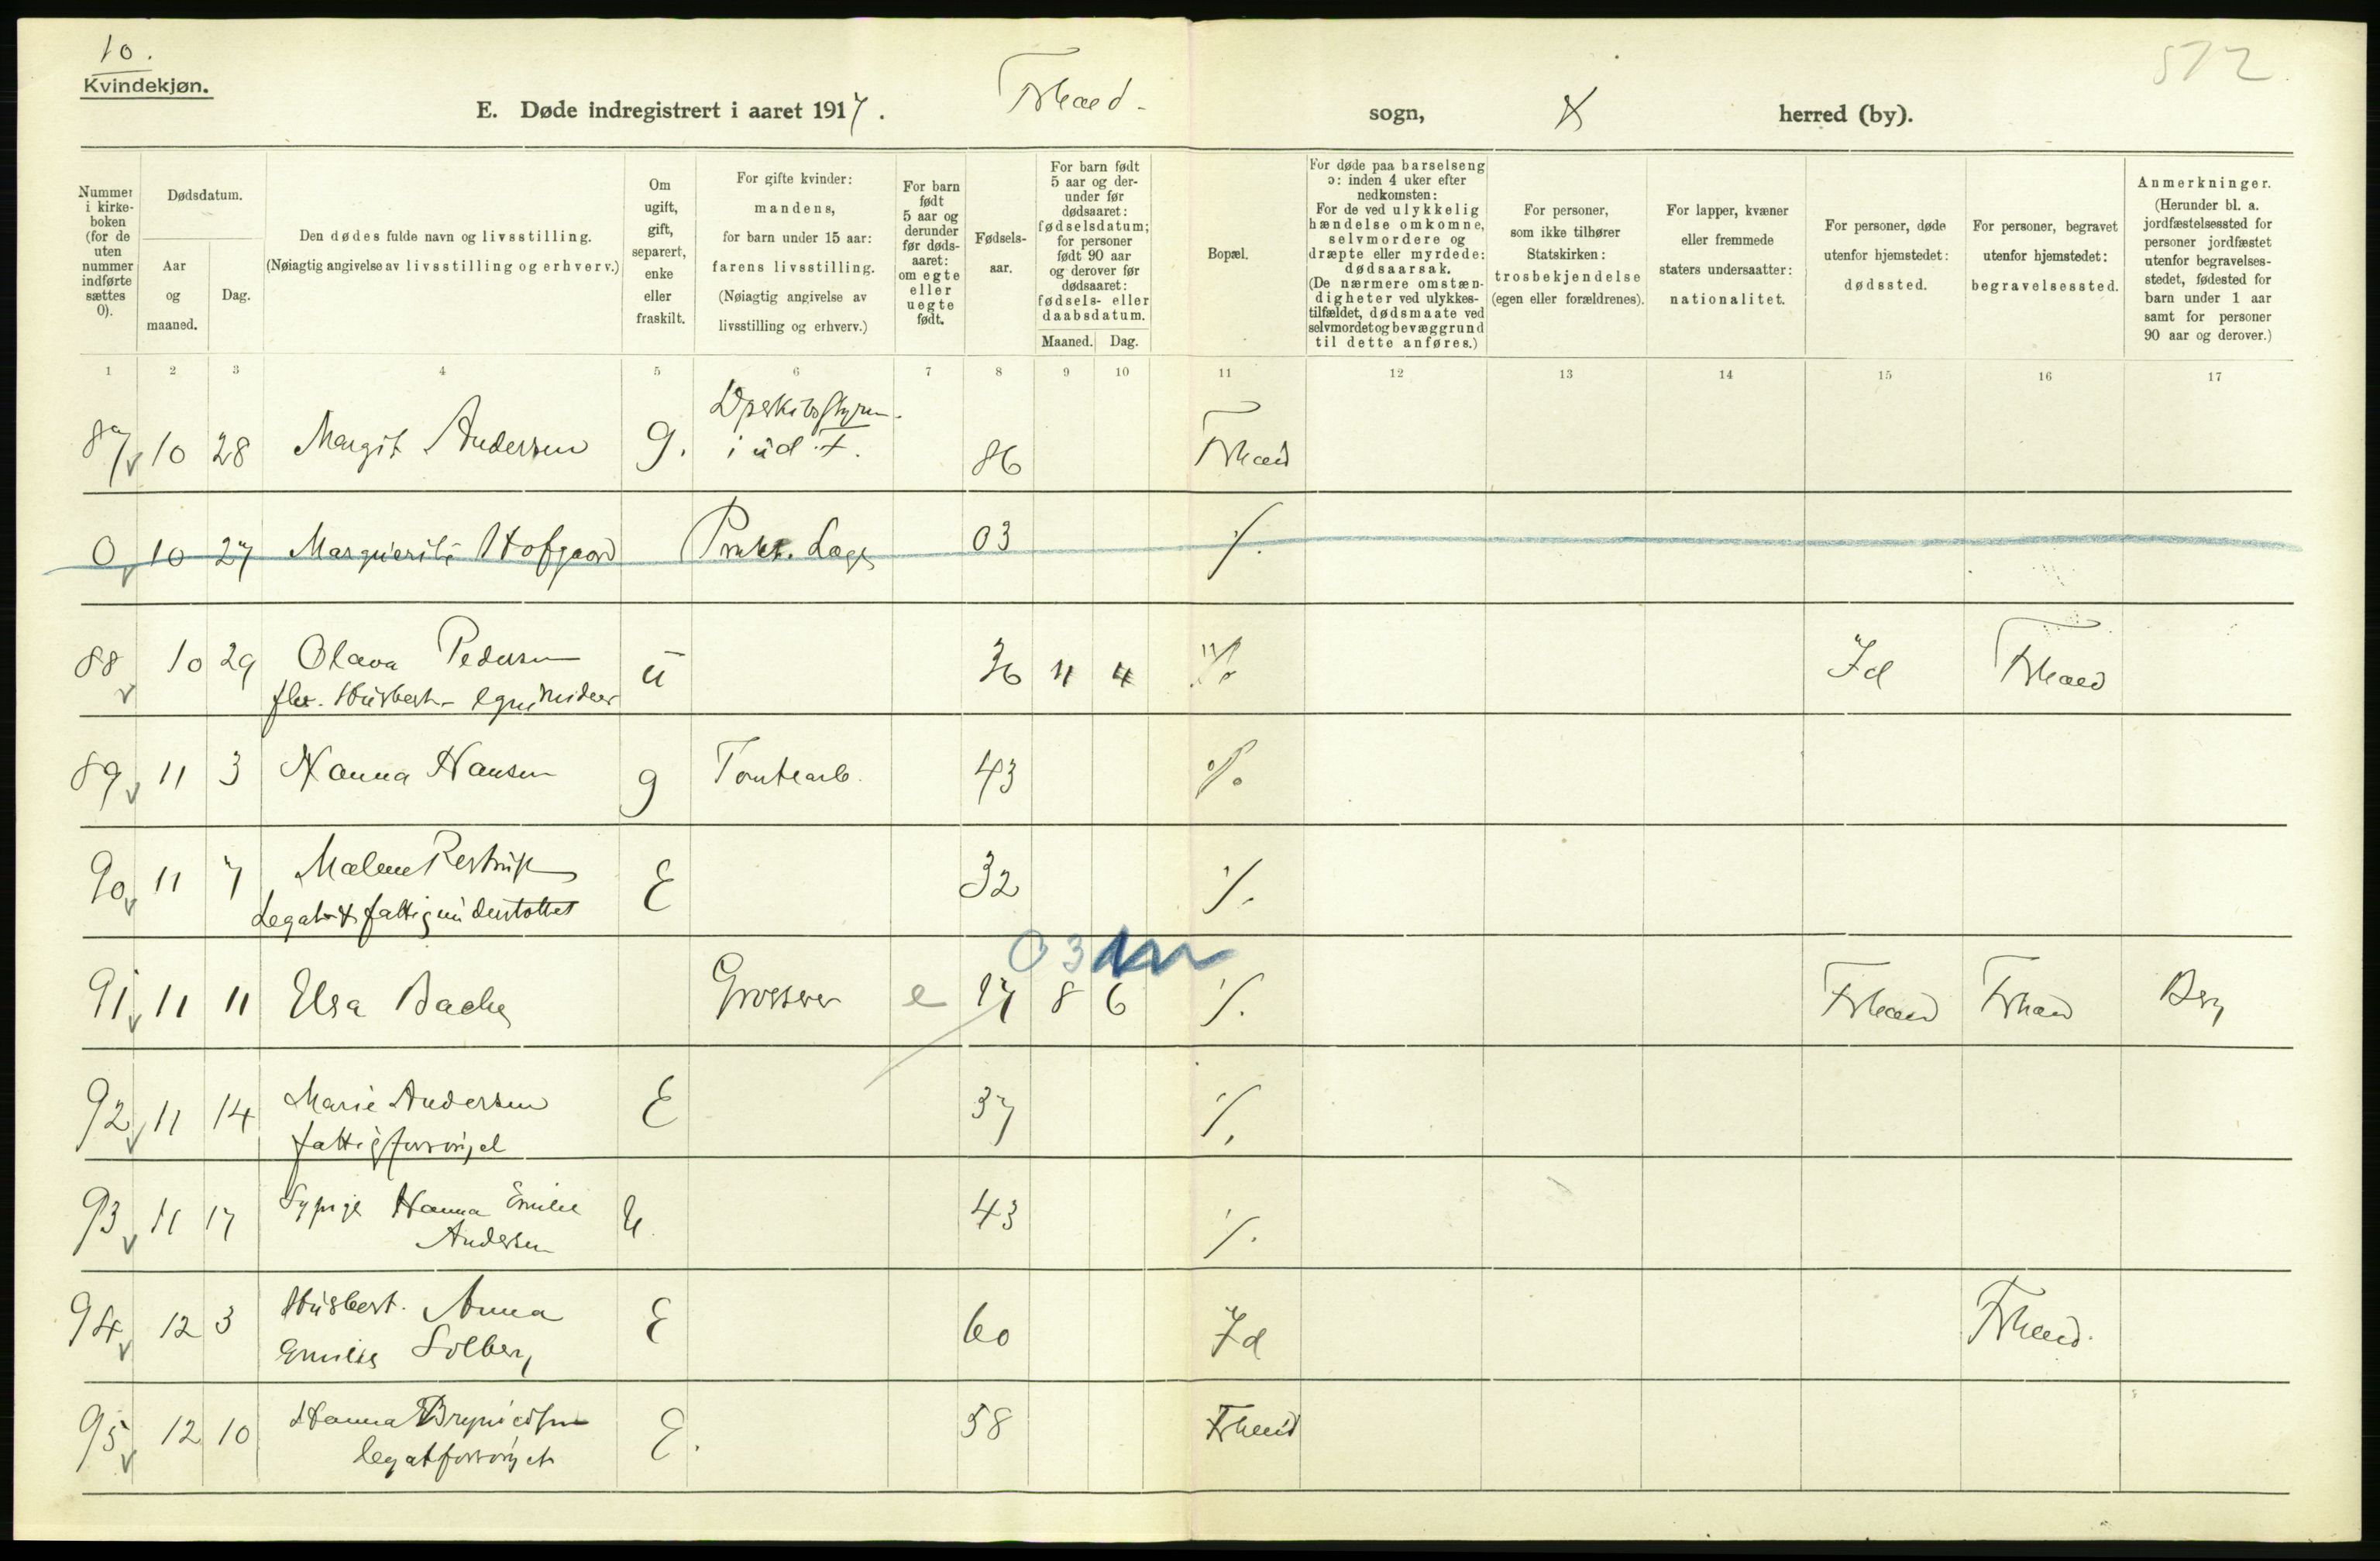 10.
Kvindekjøn.
572
E. Døde indregistrert i aaret 1917. Frhald - sogn, herred (by).
Nummer i kirke-boken (for de uten nummer indførte sættes 0).
Dødsdatum.
Aar og maaned.
Dag.
Den dødes fulde navn og livsstilling.
(Nøiagtig angivelse av livsstilling og erhverv.)
Om ugift, gift, separert, enke eller fraskilt.
For gifte kvinder: mandens, for barn under 15 aar: farens livsstilling.
(Nøiagtig angivelse av livsstilling og erhverv.)
For barn født 5 aar og derunder før døds-aaret: om egte eller uegte født.
Fødsels-aar.
For barn født 5 aar og der-under før dødsaaret: fødselsdatum; for personer født 90 aar og derover før dødsaaret: fødsels- eller daabsdatum.
Maaned. Dag.
Bopæl.
For døde paa barselseng ɔ: inden 4 uker efter nedkomsten:
For de ved ulykkelig hændelse omkomne, selvmordere og dræpte eller myrdede: dødsaarsak.
(De nærmere omstæn-digheter ved ulykkes-tilfældet, dødsmaate ved selvmordet og bevæggrund til dette anføres.)
For personer, som ikke tilhører Statskirken: trosbekjendelse (egen eller forældrenes).
For lapper, kvæner eller fremmede staters undersaatter: nationalitet.
For personer, døde utenfor hjemstedet: dødssted.
For personer, begravet utenfor hjemstedet: begravelsessted.
Anmerkninger.
(Herunder bl. a. jordfæstelsessted for personer jordfæstet utenfor begravelses-stedet, fødested for barn under 1 aar samt for personer 90 aar og derover.)
1 2 3 4 5 6 7 8 9 10 11 12 13 14 15 16 17
87 10 28 Margit Andersen g. i ud. 86 Frhald
0 10 27 Marguerite Hofgaard Prakt. Læge 03 ./.
88 10 29 Olava Pedersen u 36 11 4 ./. Id Frhald
Husbest. egne midler
89 11 3 Hanna Hansen g Tomtearb. 43 ./.
90 11 7 Malene Restrup E 32 ./.
Legat & fattigunderstøttet
03
91 11 11 Elsa Bache Grosserer e 17 8 6 ./. Frhald Frhald Berg
92 11 14 Marie Andersen E 37 ./.
fattigforsørget
93 11 17 Sypige Hanna Emilie U. 43 ./.
Andersen
94 12 3 Husbest. Anna E 60 Id Frhald.
Emilie Solberg
95 12 10 Hanna Brynildsen E. 58 Frhald
legatforsørget